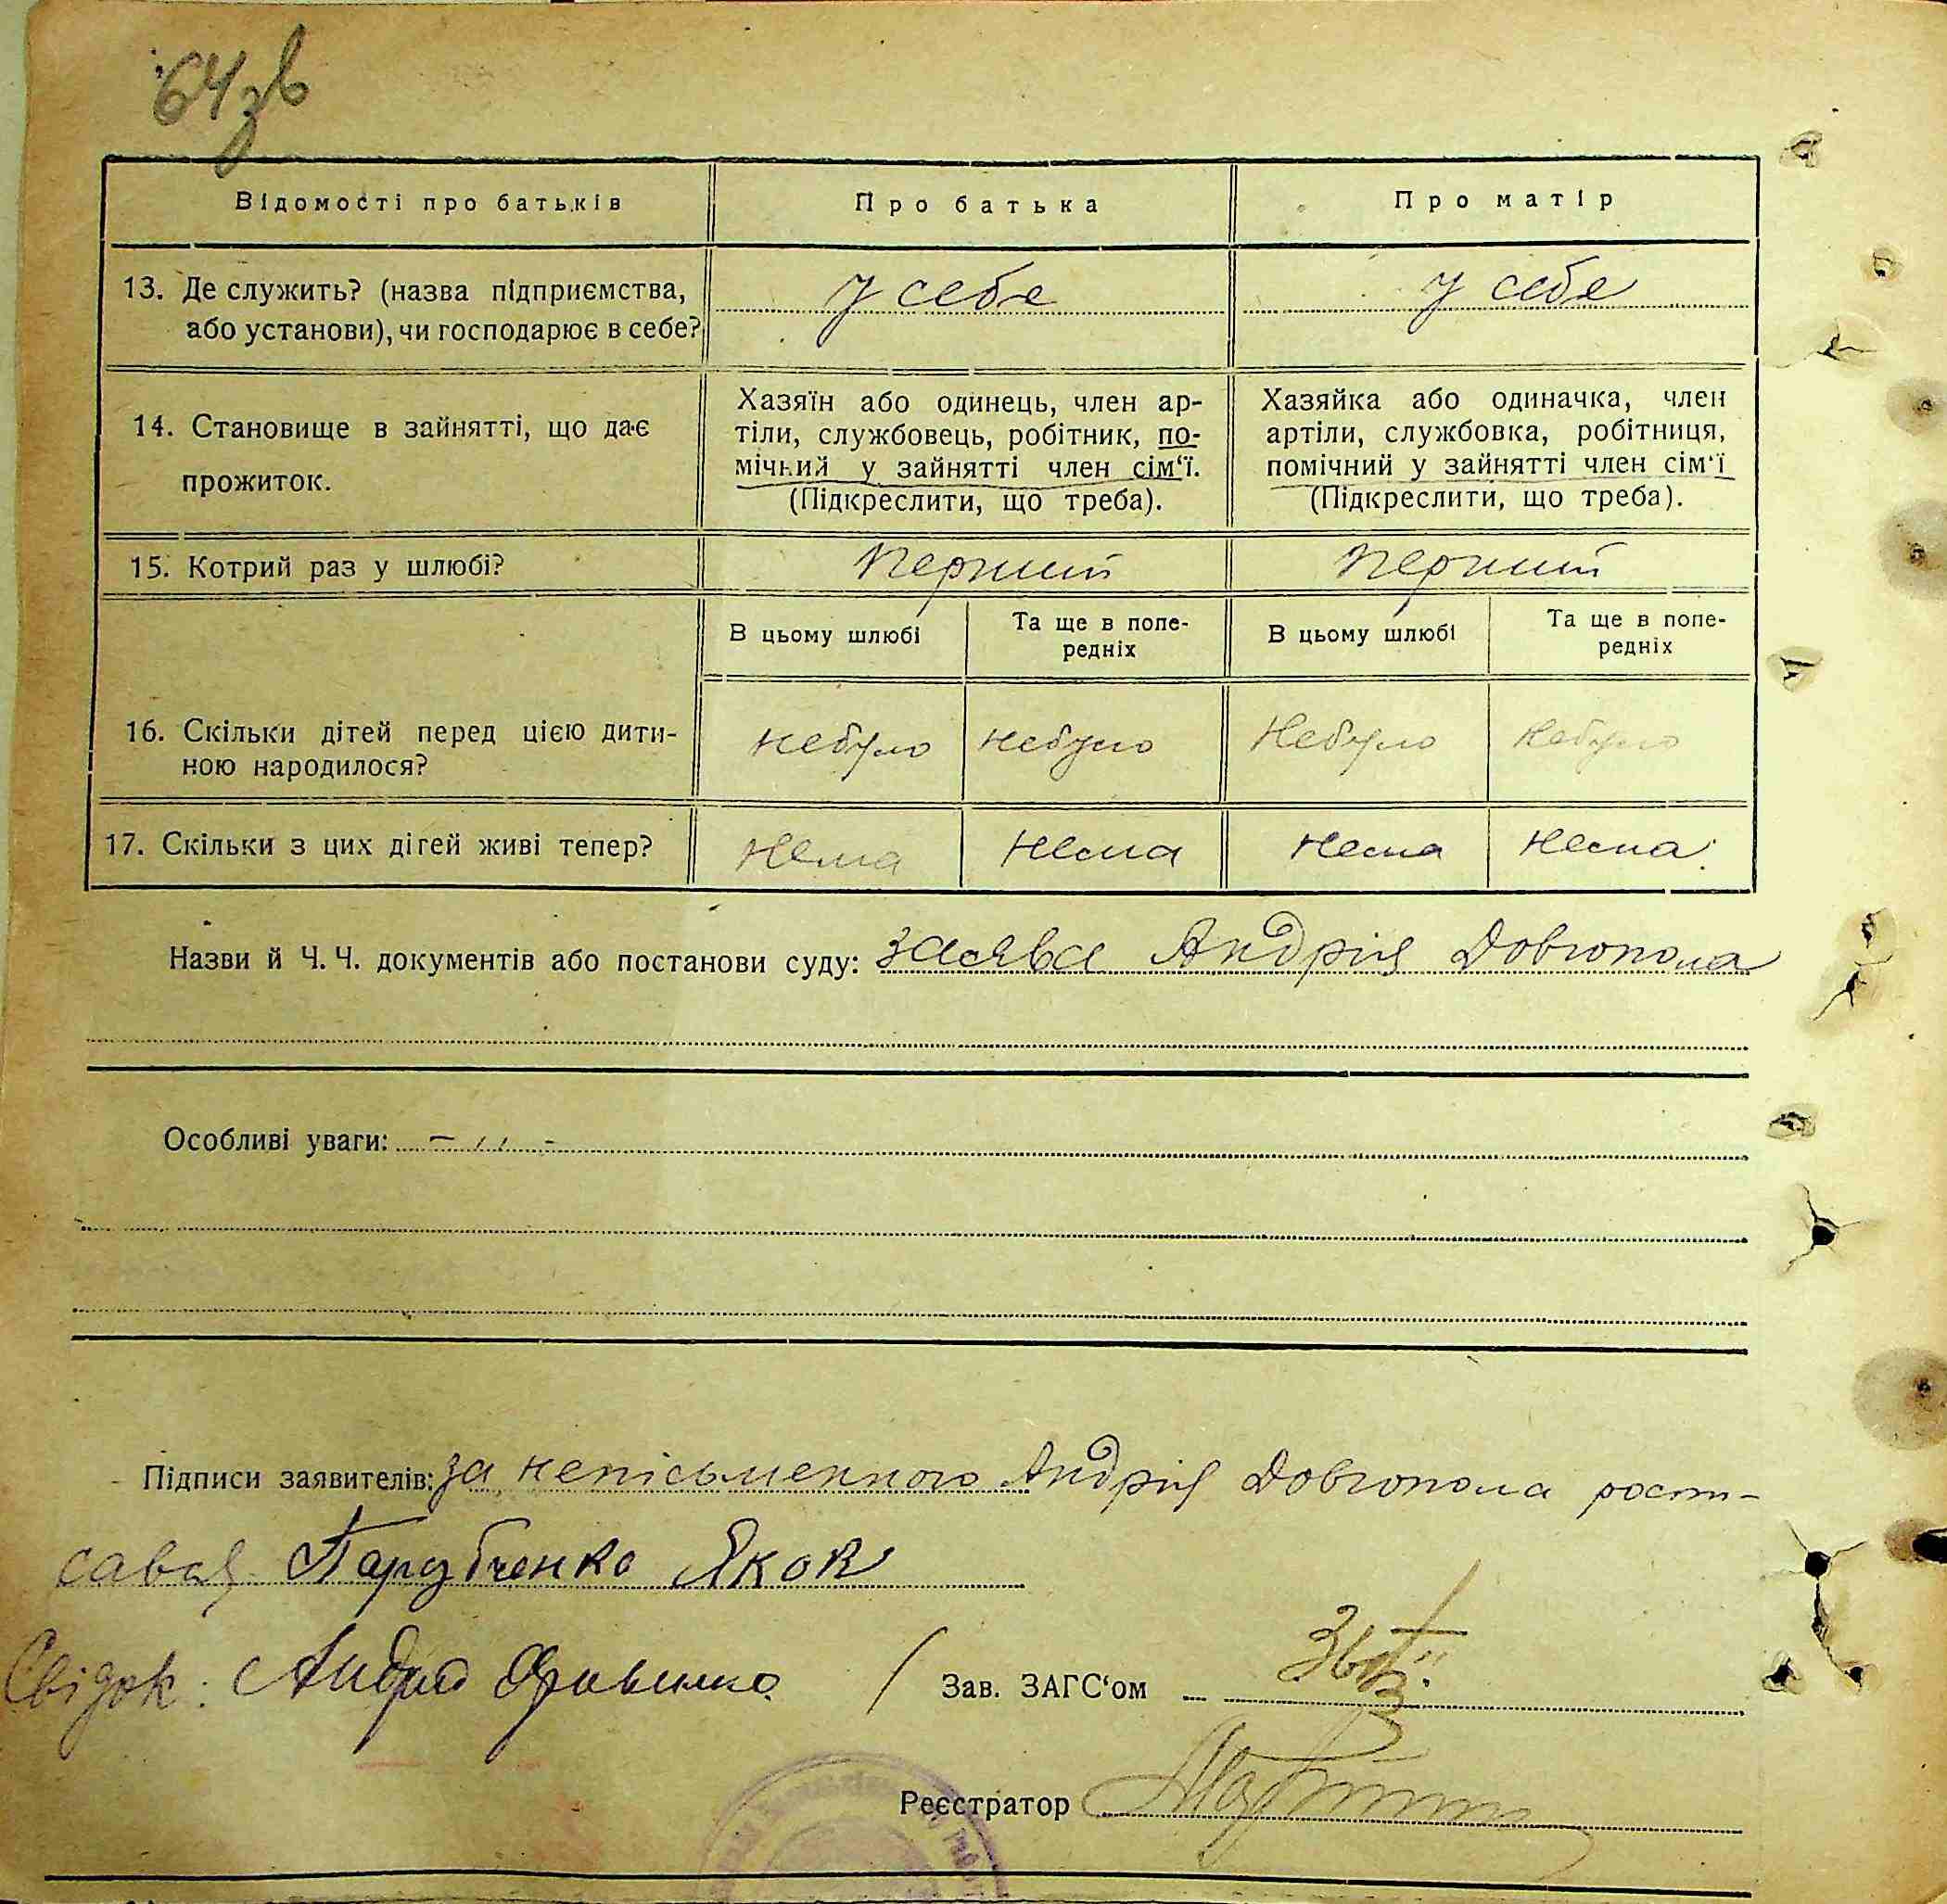 64зв
Відомості про батьків
Про батька
Про матір
13. Де служить? (назва підприємства,
або установи), чи господарює в себе?
у себе
у себе
14. Становище в зайнятті, що дає
прожиток.
Хазяїн або одинець, член ар-
тіли, службовець, робітник, по-
мічний у зайнятті член сім'ї.
(Підкреслити, що треба).
Хазяйка або одиначка, член
артіли, службовка, робітниця,
помічний у зайнятті член сім'ї
(Підкреслити, що треба).
15. Котрий раз у шлюбі?
перший
перший
В цьому шлюбі
Та ще в попе-
редніх
В цьому шлюбі
Та ще в попе-
редніх
16. Скільки дітей перед цією дити-
ною народилося?
небуло
небуло
Небуло
Небуло
17. Скільки з цих дітей живі тепер?
Нема
Нема
Нема
Нема
Назви й Ч. Ч. документів або постанови суду: заява Андрія Довгопола
Особливі уваги: - ,, -
Підписи заявителів: за непісьменного Андрія Довгопола роспи-
савсь Парубченко Яков
Свідок: Андрій
Зав. ЗАГС'ом
Реєстратор